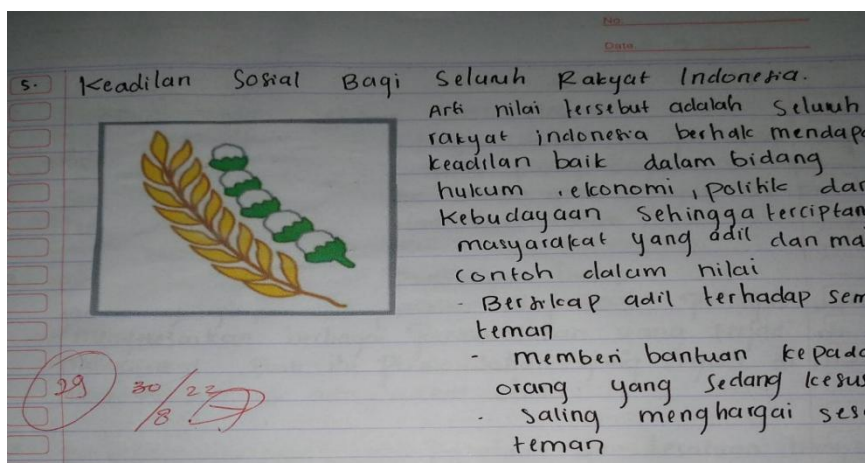 No.
Date
5. Keadilan Sosial Bagi Seluruh Rakyat Indonesia.
Arti nilai tersebut adalah Seluruh
rakyat indonesia berhak mendapa
keadilan baik dalam bidang
hukum , ekonomi , politik dan
kebudayaan Sehingga terciptan
masyarakat yang adil dan ma
contoh dalam nilai
- Bersikap adil terhadap sem
teman
- memberi bantuan kepada
orang yang sedang kesus
- Saling menghargai ses
teman
29
30/8 22